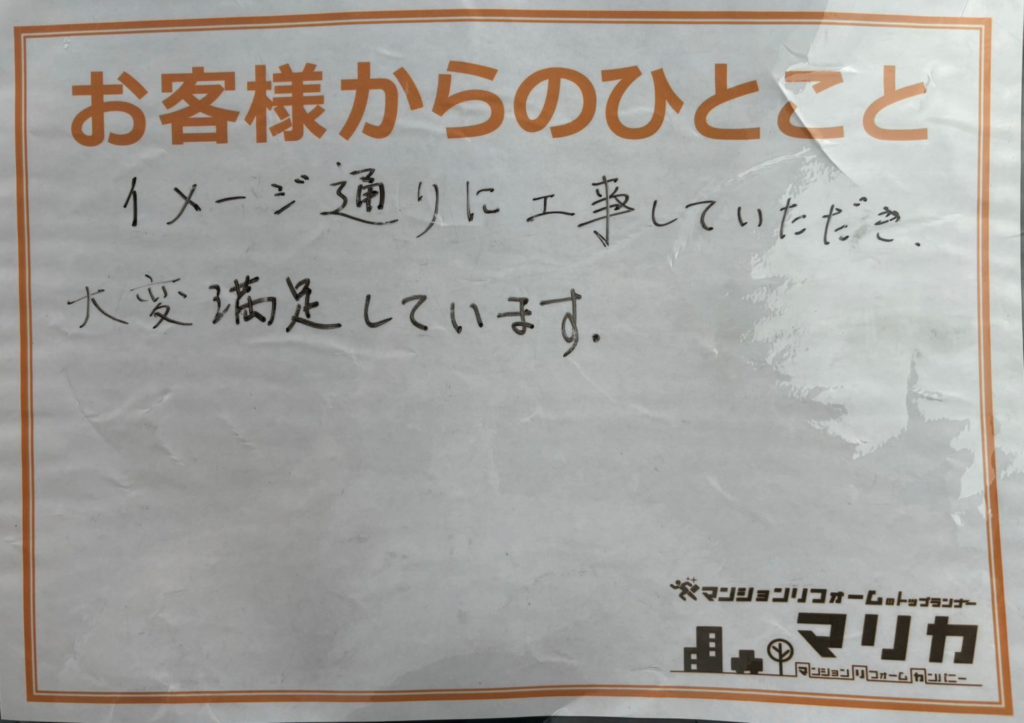 お客様からのひとこと
イメージ通りに工事していただき.
大変満足しています.
マンションリフォームのトップランナー
マリカ
マンションリフォームカンパニー